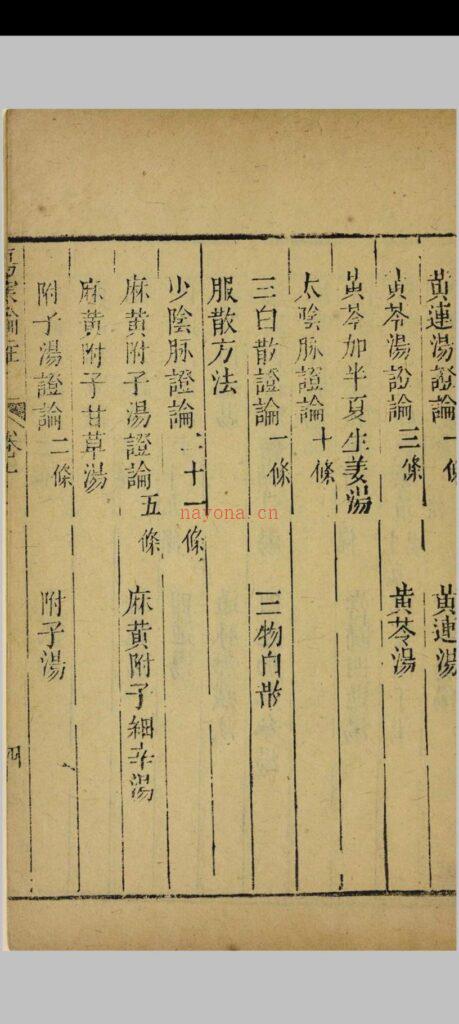 黃連湯證論一條 黃連湯
黃芩湯證論三條 黃芩湯
黃芩加半夏生姜湯
太陰脉證論十條
三白散證論一條 三物白散
服散方法
少陰脉證論二十一條
麻黃附子湯證論五條 麻黃附子細辛湯
麻黃附子甘草湯
附子湯證論二條 附子湯
傷寒論註 卷上 四
nayona.cn